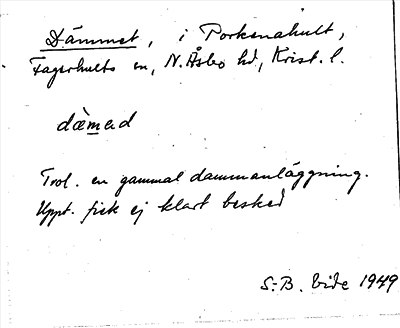 Dämmet, i Porkenahult,
Fagerhults sn, N. Åsbo hd, Krist. l.
däməd
Trol. en gammal dammanläggning.
Uppt. fick ej klart besked
S.-B. Vide 1949